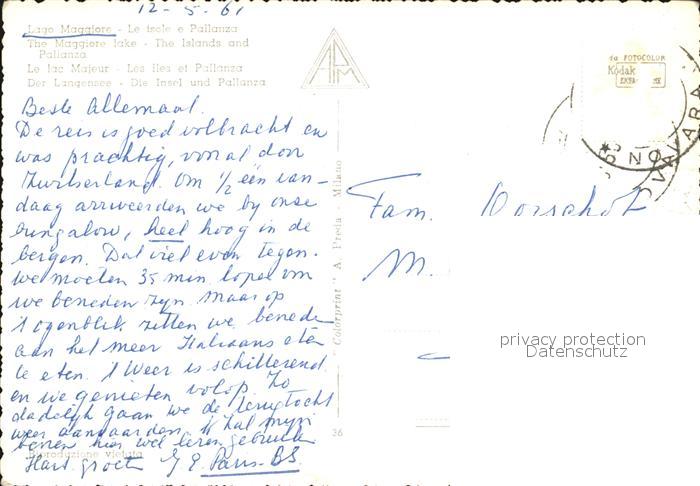 12-5-61
Lago Maggiore - Le isole e Pallanza
The Maggiore lake - The Islands and
Pallanza
Le lac Majeur - Les iles et Pallanza
Der Langensee - Die Insel und Pallanza
APM
da FOTOCOLOR
Kodak
EKTA
Beste Allemaal.
De reis is goed volbracht en
was prachtig, vooral door
Zwitserland. Om 1/2 één van-
daag arriveerden we by onze
bungalow, heel hoog in de
bergen. Dat viel even tegen.
we moeten 35 min lopen om
we beneden zyn. Maar op
't ogenblik zitten we beneden
aan het meer Italiaans eten
te eten. 't Weer is schitterend
en we genieten volop. Zo
dadelijk gaan we de terugtocht
weer aanvaarden. Ik zal mijn
benen hier wel leren gebruiken
Hart. groeten
Riproduzione vietata
Colorprint " A. Preda - Milano
36
Fam. Oorschot
M.
NOVARA
privacy protection
Datenschutz